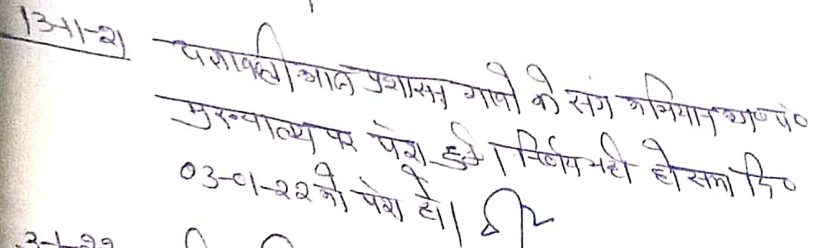 13-11-21 पत्रावली आज प्रशासन गावो के संग अभियान ग्रा० पं०
मुख्यालय पर पेश हुई। निर्णय नही हो सका दि०
03-01-22 को पेश हो।
3-1-22